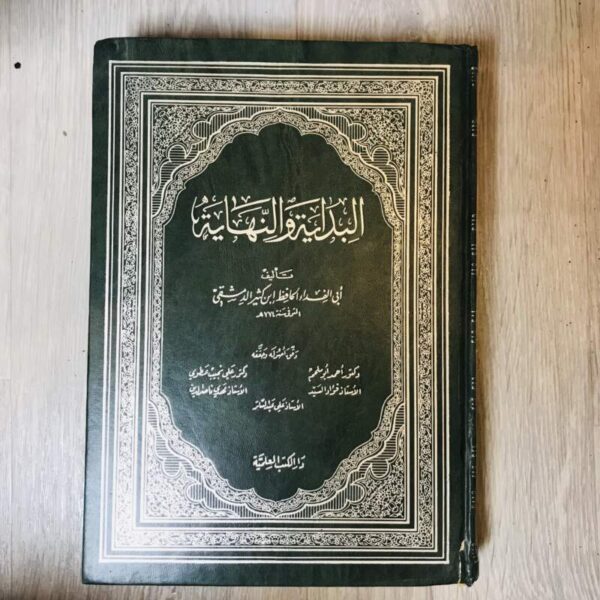 البداية والنهاية
تأليف
أبي الفداء الحافظ ابن كثير الدمشقي
المتوفى سنة ٧٧٤ هـ
دقق أصوله وحققه
دكتور أحمد أبو ملحم
دكتور علي نجيب عطوي
الأستاذ فؤاد السيد
الأستاذ مهدي ناصر الدين
الأستاذ علي عبد الساتر
دار الكتب العلمية